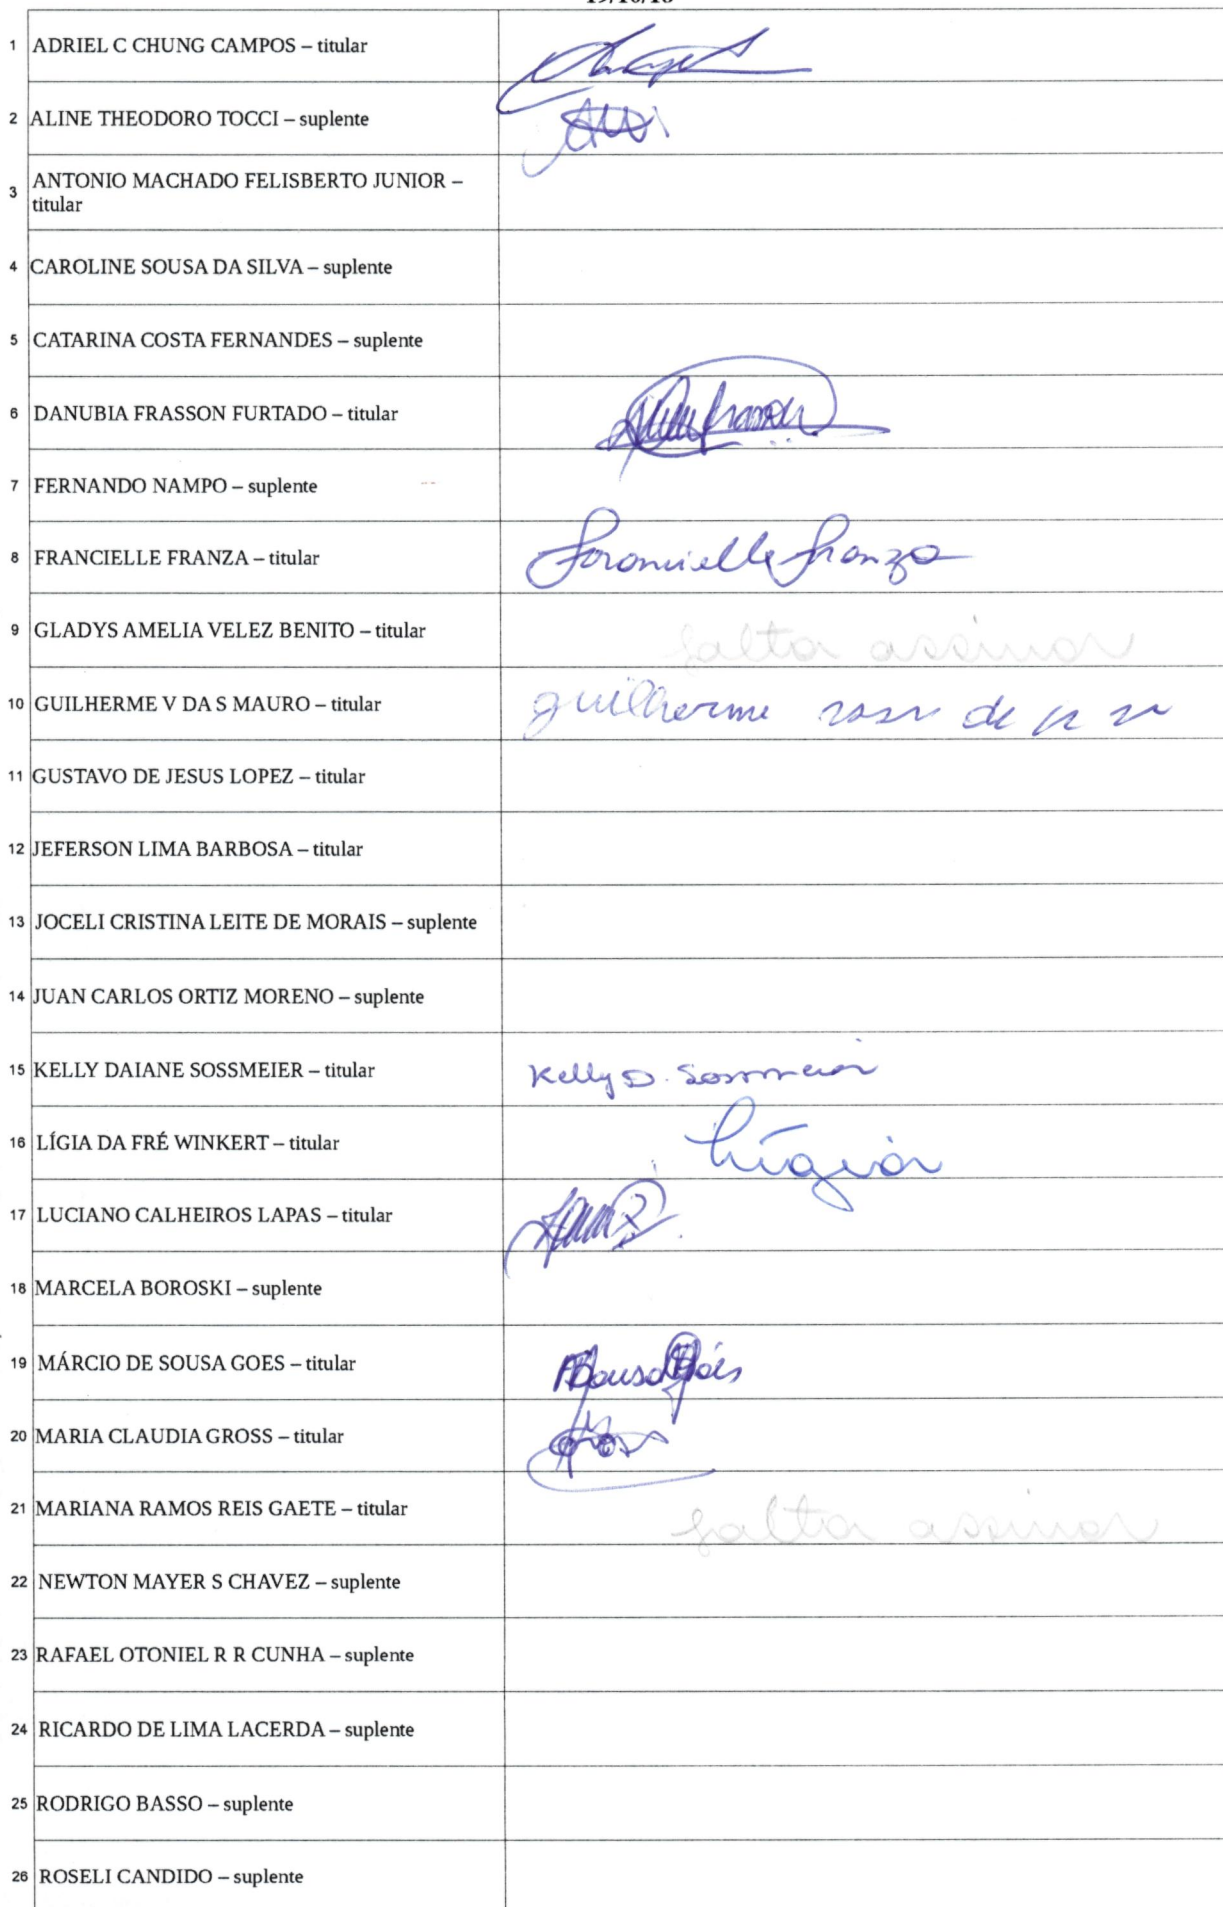 1 ADRIEL C CHUNG CAMPOS – titular
2 ALINE THEODORO TOCCI – suplente
3 ANTONIO MACHADO FELISBERTO JUNIOR –
titular
4 CAROLINE SOUSA DA SILVA – suplente
5 CATARINA COSTA FERNANDES – suplente
6 DANUBIA FRASSON FURTADO – titular
7 FERNANDO NAMPO – suplente
8 FRANCIELLE FRANZA – titular Francielle Franza
9 GLADYS AMELIA VELEZ BENITO – titular falta assinar
10 GUILHERME V DA S MAURO – titular guilherme
11 GUSTAVO DE JESUS LOPEZ – titular
12 JEFERSON LIMA BARBOSA – titular
13 JOCELI CRISTINA LEITE DE MORAIS – suplente
14 JUAN CARLOS ORTIZ MORENO – suplente
15 KELLY DAIANE SOSSMEIER – titular Kelly D. Sossmeier
16 LÍGIA DA FRÉ WINKERT – titular Lígia
17 LUCIANO CALHEIROS LAPAS – titular
18 MARCELA BOROSKI – suplente
19 MÁRCIO DE SOUSA GOES – titular
20 MARIA CLAUDIA GROSS – titular
21 MARIANA RAMOS REIS GAETE – titular falta assinar
22 NEWTON MAYER S CHAVEZ – suplente
23 RAFAEL OTONIEL R R CUNHA – suplente
24 RICARDO DE LIMA LACERDA – suplente
25 RODRIGO BASSO – suplente
26 ROSELI CANDIDO – suplente